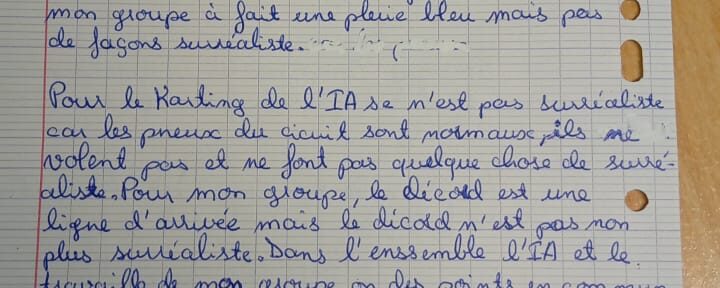 mon groupe à fait une pluie bleu mais pas
de façons surréaliste.
Pour le Karting de l'IA se n'est pas surréaliste
car les pneux du cicuit sont normaux, ils ne
volent pas et ne font pas quelque chose de surré-
aliste. Pour mon groupe, le décord est une
ligne d'arrivée mais le dicord n'est pas non
plus surréaliste. Dans l'enssemble l'IA et le
travaille de mon groupe on des points en commun